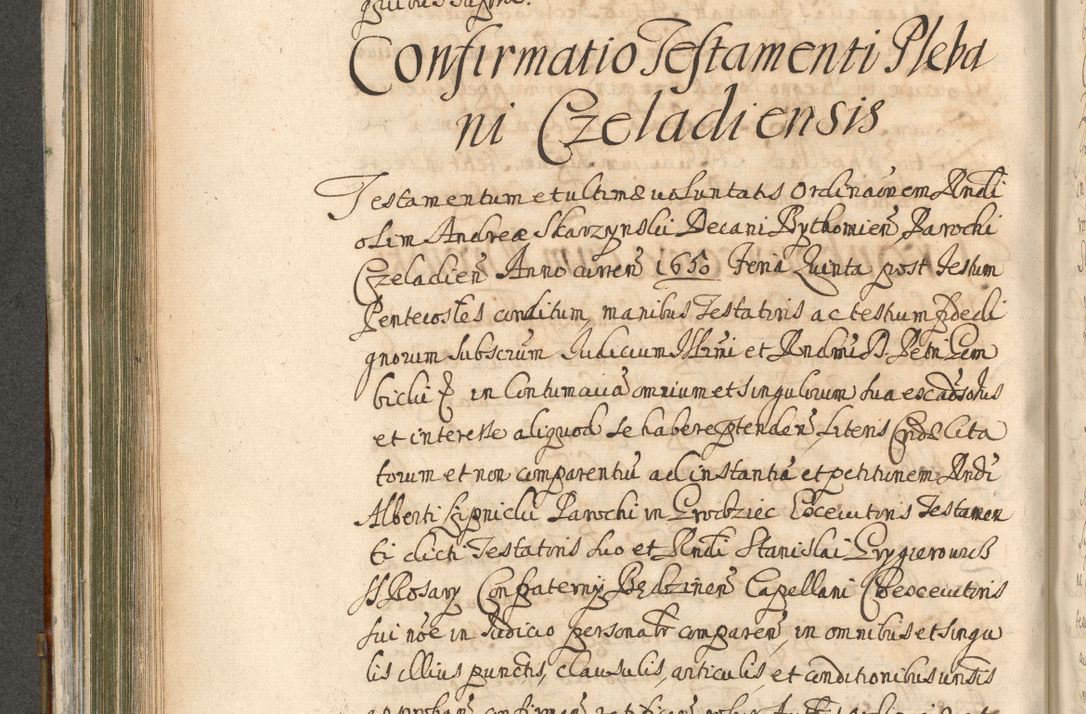 Confirmatio Testamenti Pleba
ni Czeladiensis
Testamentum et ultimæ voluntatis Ordinaōnem Rndi
olim Andreæ Skarzynskii Decani Bythomień Parochi
Czeladień Anno curreń 1650 Feria Quinta post Festum
Pentecostes conditum, manibus Testatoris ac testium fidedi
gnorum subscrium Judicium Illrmi et Rndmi D. Petri Gem
bicki & in Contumaciā omnium et singulorum sua
et interesse aliquod se habere ptendeń litens Cita
torum et non comparentiū ad instantiā et petitionem Rndi
Alberti Parochi in Grodziec Executoris Testamen
ti dicti Testatoris suo et Rndi Stanislai Grygierowicz
SS Rosary Confraterny Będzineń Capellani Coexecutoris
sui nōe in Judicio personalr compareń in omnibus et singu
lis illius punctis, clausulis, articulis, et conditionibus